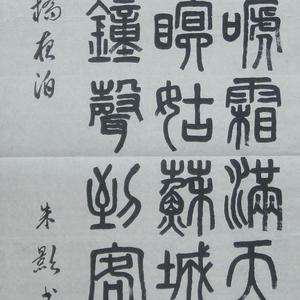 嗁霜滿天
瞑姑蘇城
鐘聲到客
橋夜泊
朱影书